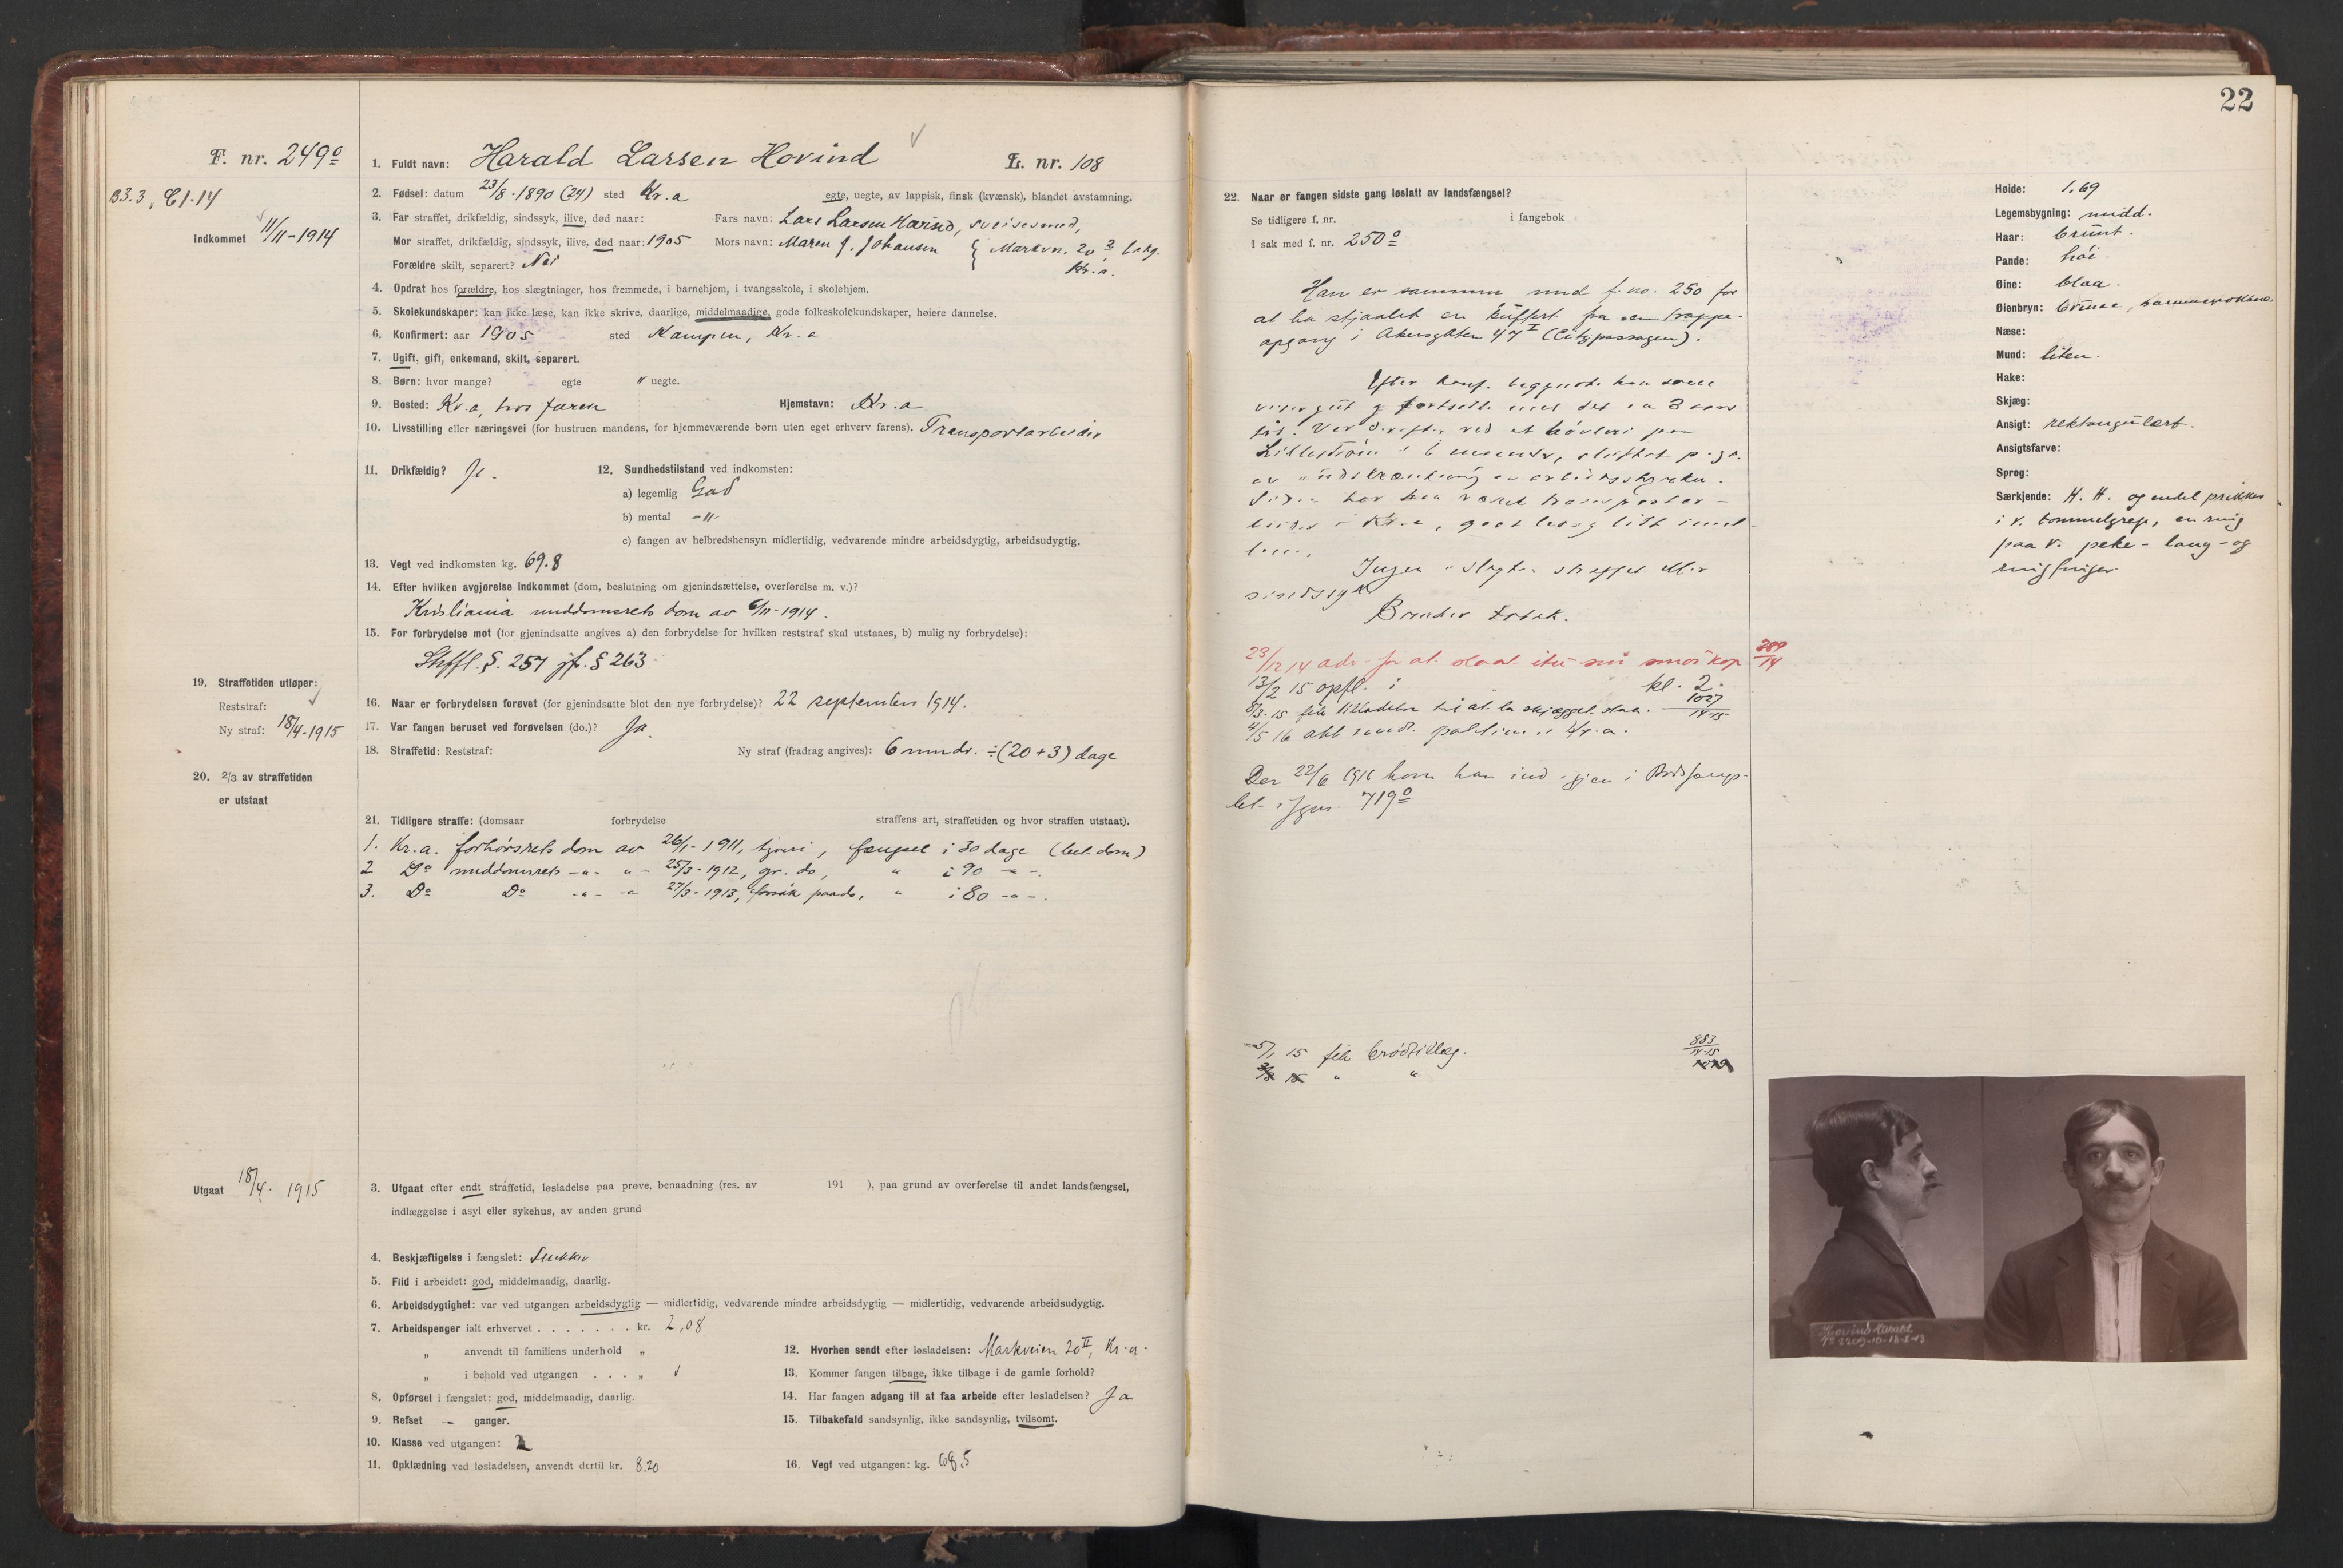 22
F. nr. 249º
B3.3, C1.14
Indkommet 11/11-1914
1. Fuldt navn: Harald Larsen Hovind L. nr. 108
2. Fødsel: datum 23/8-1890 (24) sted Kr.a egte, uegte, av lappisk, finsk (kvænsk), blandet avstamning.
3. Far straffet, drikfældig, sindssyk, ilive, død naar: Fars navn: Lars Larsen Hovind, sveisesmed,
Mor straffet, drikfældig, sindssyk, ilive, død naar: 1905 Mors navn: Maren J. Johansen { Markvn. 20
Forældre skilt, separert? Nei Kr.a.
4. Opdrat hos forældre, hos slægtninger, hos fremmede, i barnehjem, i tvangsskole, i skolehjem.
5. Skolekundskaper: kan ikke læse, kan ikke skrive, daarlige, middelmaadige, gode folkeskolekundskaper, høiere dannelse.
6. Konfirmert: aar 1905 sted Kampen, Kr.a
7. Ugift, gift, enkemand, skilt, separert.
8. Børn: hvor mange? egte " uegte.
9. Bosted: Kr.a, hos faren Hjemstavn: Kr.a
10. Livsstilling eller næringsvei (for hustruen mandens, for hjemmeværende børn uten eget erhverv farens). Transportarbeider
11. Drikfældig? Ja. 12. Sundhedstilstand ved indkomsten:
a) legemlig God
b) mental -"-
c) fangen av helbredshensyn midlertidig, vedvarende mindre arbeidsdygtig, arbeidsudygtig.
13. Vegt ved indkomsten kg. 69.8
14. Efter hvilken avgjørelse indkommet (dom, beslutning om gjenindsættelse, overførelse m. v.)?
Kristiania meddomsrets dom av 6/11-1914.
15. For forbrydelse mot (for gjenindsatte angives a) den forbrydelse for hvilken reststraf skal utstaaes, b) mulig ny forbrydelse):
Strffl. §. 257 jf. § 263.
19. Straffetiden utløper:
Reststraf:
Ny straf: 18/4-1915
16. Naar er forbrydelsen forøvet (for gjenindsatte blot den nye forbrydelse)? 22 september 1914.
17. Var fangen beruset ved forøvelsen (do.)? Ja.
18. Straffetid: Reststraf: Ny straf (fradrag angives): 6 mndr. ÷ (20+3) dage
20. 2/3 av straffetiden
er utstaat
21. Tidligere straffe: (domsaar forbrydelse straffens art, straffetiden og hvor straffen utstaat).
1. Kr.a. forhørsrets dom av 26/1-1911, tyveri, fængsel i 30 dage (bet. dom)
2 Dº meddomsrets -"- "- 25/3-1912, gr. do, " i 90 -"-.
3. Dº Dº -"- -" 27/3-1913, forsøk paa do, " i 80 -"-.
Utgaat 18/4-1915
3. Utgaat efter endt straffetid, løsladelse paa prøve, benaadning (res. av 191 ), paa grund av overførelse til andet landsfængsel,
indlæggelse i asyl eller sykehus, av anden grund
4. Beskjæftigelse i fængslet:
5. Flid i arbeidet: god, middelmaadig, daarlig.
6. Arbeidsdygtighet: var ved utgangen arbeidsdygtig — midlertidig, vedvarende mindre arbeidsdygtig — midlertidig, vedvarende arbeidsudygtig.
7. Arbeidspenger ialt erhvervet . . . . . . . kr. 2,08
" anvendt til familiens underhold "
" i behold ved utgangen . . . "
8. Opførsel i fængslet: god, middelmaadig, daarlig.
9. Refset – ganger.
10. Klasse ved utgangen: 2
11. Opklædning ved løsladelsen, anvendt dertil kr. 8.20
12. Hvorhen sendt efter løsladelsen: Markveien 20 II, Kr.a.
13. Kommer fangen tilbage, ikke tilbage i de gamle forhold?
14. Har fangen adgang til at faa arbeide efter løsladelsen? Ja
15. Tilbakefald sandsynlig, ikke sandsynlig, tvilsomt.
16. Vegt ved utgangen: kg. 69,5
22. Naar er fangen sidste gang løslatt av landsfængsel?
Se tidligere f. nr. i fangebok
I sak med f. nr. 250º
Han er sammen med f.no. 250 for
at ha stjaalet en kuffert fra en trappe-
opgang i Akersgaten 47 I (Citypassagen).
Efter konf. begynte han som
visergut og fortsatte med det ca 3 aars
tid. Var derefter ved et høvleri paa
Lillestrøm i 6 maaneder, sluttet p.g.a.
av indskrænkning av arbeidsstyrken.
Siden har han været transportar-
beider i Kr.a, gaat ledig litt imel-
lem.
Ingen i slegten straffet eller
sindssyk.
Bruker tobak.
23/12 14 adv. for at slaat itu sin smørkop 389/14
13/2 15 opfl. i kl. 2.
8/3-15 fik tilladelse til at la skjægget staa. 1027/14-15
4/5 16 akt sendt politim. i Kr.a.
Den 22/6 1916 kom han ind igjen i Bodsfængs-
let i fgnr. 719º
5/1 15 fik brødtillæg. 883/14-15
Høide: 1.69
Legemsbygning: midd.
Haar: brunt.
Pande: høi.
Øine: blaa.
Øienbryn: brune, sammenvoksne
Næse:
Mund: liten.
Hake:
Skjæg:
Ansigt: rektangulært.
Ansigtsfarve:
Sprog:
Særkjende: H. H. og endel prikker
i v. tommelgrep, en ring
paa v. peke- lang- og
ringfinger
Hovind Harald